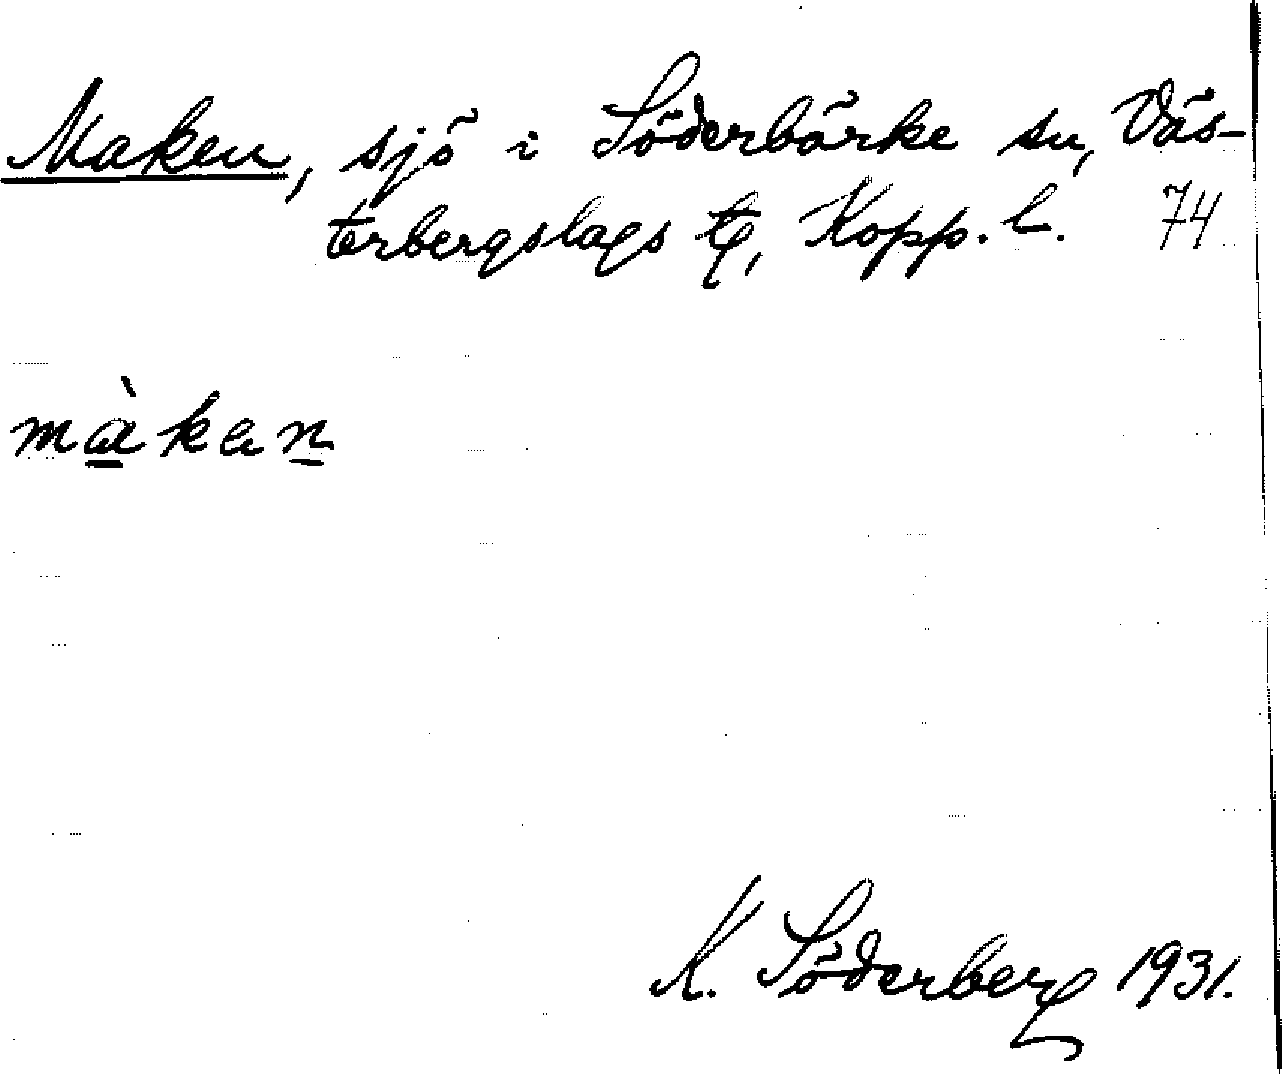 Maken, sjö i Söderbärke sn, Väs-
terbergslags tg, Kopp. l. 74
K. Söderberg 1931.